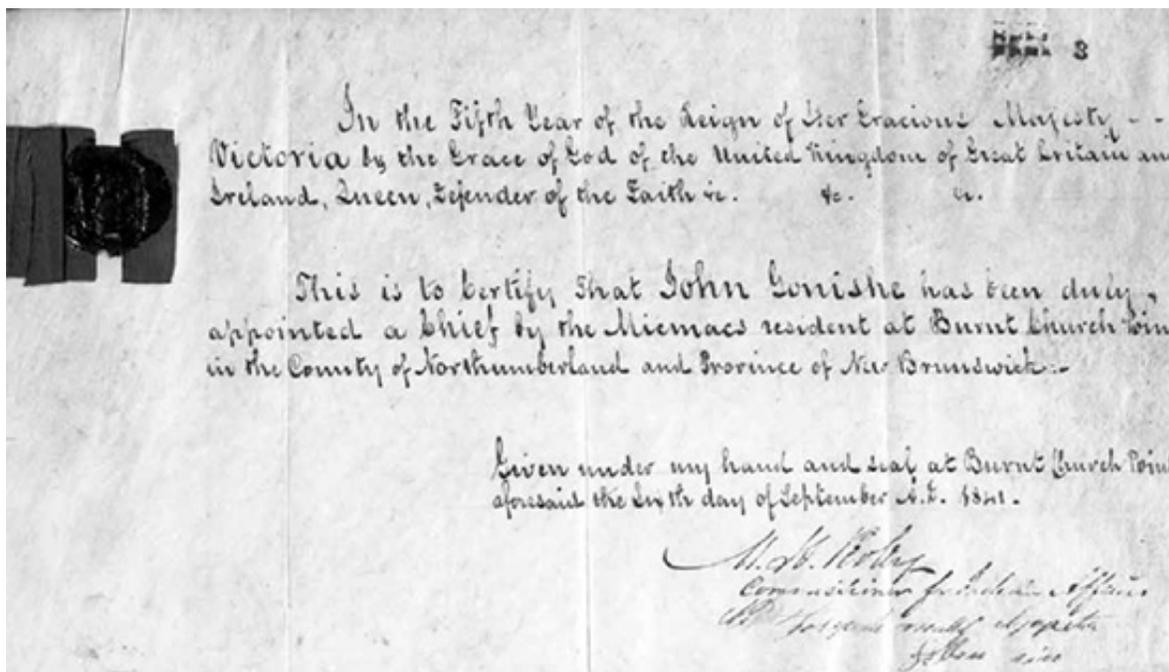 3
In the Fifth Year of the Reign of Her Gracious Majesty - -
Victoria by the Grace of God of the United Kingdom of Great Britain an
Ireland, Queen, Defender of the Faith &c. &c. &c.
This is to Certify That John Gonishe has been duly,
appointed a Chief by the Micmacs resident at Burnt Church Poin
in the County of Northumberland and Province of New Brunswick:-
Given under my hand and seal at Burnt Church Poin
aforesaid the Sixth day of September A.D. 1841.
Commissioner for Indian Affairs